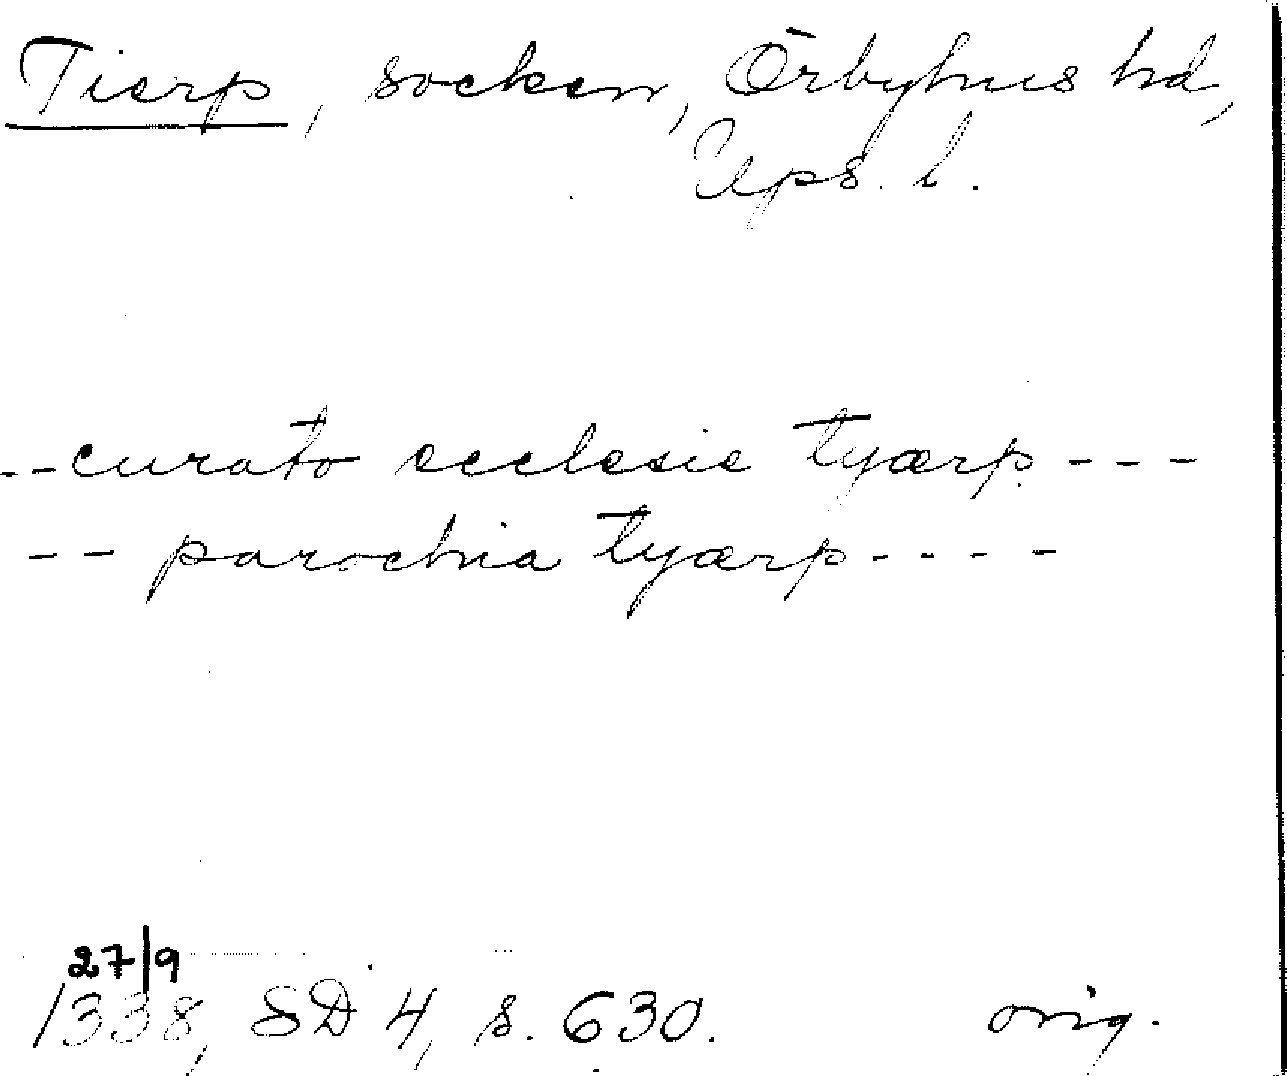 Tierp, socken, Örbyhus hd,
Ups. l.
--curato ecclesie tyærp ---
-- parochia tyærp ----
27/9
1338, SD 4, s. 630. orig.